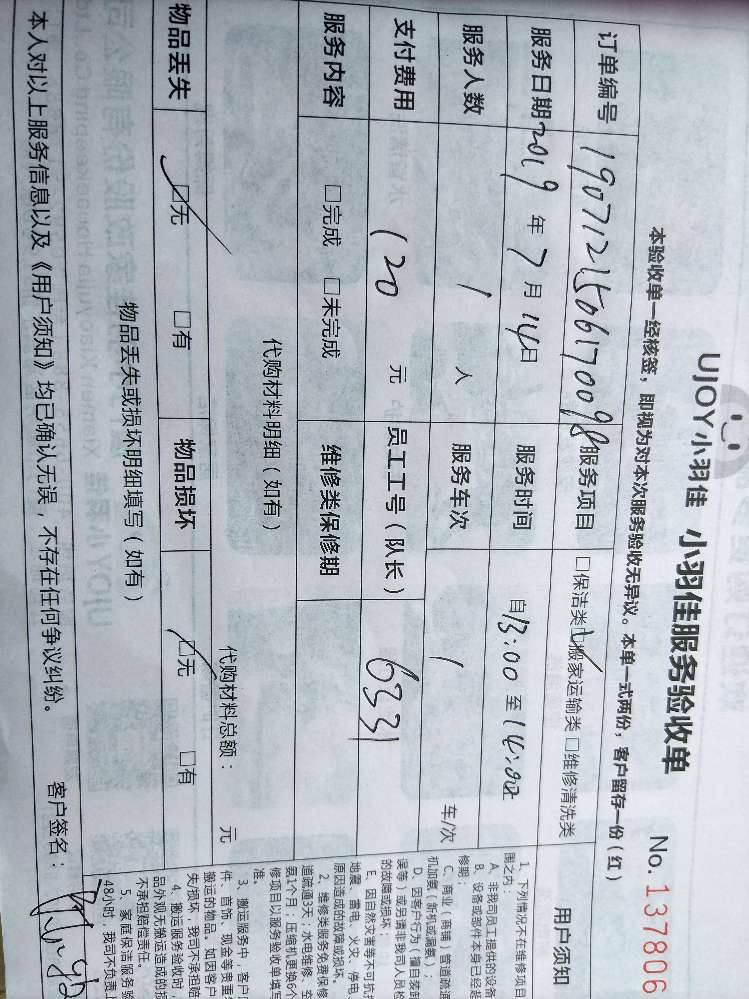 UJOY小羽佳 小羽佳服务验收单 No. 137806
本验收单一经核签，即视为对本次服务验收无异议。本单一式两份，客户留存一份（红）
订单编号 1907121506170098 服务项目 □保洁类 □搬家运输类 □维修清洗类
服务日期 2019 年 7 月 14 日 服务时间 自 13:00 至 14:00
服务人数 1 人 服务车次 1 车/次
支付费用 120 元 员工工号（队长） 6331
服务内容 □完成 □未完成 维修类保修期
代购材料明细（如有）
代购材料总额： 元
物品丢失 □无 □有 物品损坏 □无 □有
物品丢失或损坏明细填写（如有）
本人对以上服务信息以及《用户须知》均已确认无误，不存在任何争议纠纷。 客户签名：
用户须知
1、下列情况不在维修项目
围之内：
A、非我司员工提供的设备
B、设备或部件本身已经起
修期
C、商业（商铺）管道疏通
机加氨（新机或漏氨）；
D、因客户行为（擅自装卸
误等）或另请非我司人员检
的故障或损坏；
E、因自然灾害等不可抗
地震、雷电、火灾、停电、
原因造成的故障或损坏。
2、维修类服务免费保修
道疏通5天；水电维修、空
氨1个月；压缩机更换6个
修项目以服务验收单填写
准。
3、搬运服务中，客户
件、首饰、现金等贵重
搬运的物品。如因客户
失/损坏，我司不承担赔
4、搬运服务验收时，
品外观无搬运造成的损
不承担赔偿责任。
5、家庭保洁服务验
48小时，我司不负责上